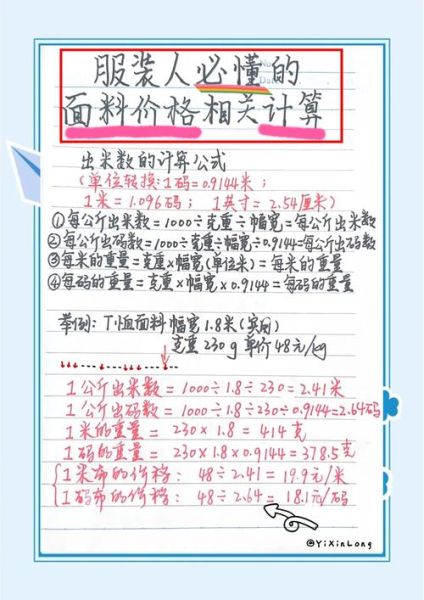 服装人必懂的
面料价格相关计算
出米数的计算公式
(单位转换:1码=0.9144米;
1米=1.096码; 1英寸=2.54厘米)
①每公斤出米数=1000÷克重÷幅宽=每公斤出米数
②每公斤出码数=1000÷克重÷幅宽÷0.9144=每公斤出码数
③每米的重量=克重×幅宽(单位米)=每米的重量
④每码的重量=克重×幅宽×0.9144=每码的重量
举例:T恤面料幅宽1.8米(实用)
克重230g 单价48元/kg
1公斤出米数=1000÷1.8÷230=2.41米
1公斤出码数=1000÷1.8÷230÷0.9144=2.64码
1米的重量=230×1.8=414克
1码的重量=230×1.8×0.9144=378.5克
1米布的价格:48÷2.41=19.9元/米
1码布的价格:48÷2.64=18.1元/码
@YiXinLong